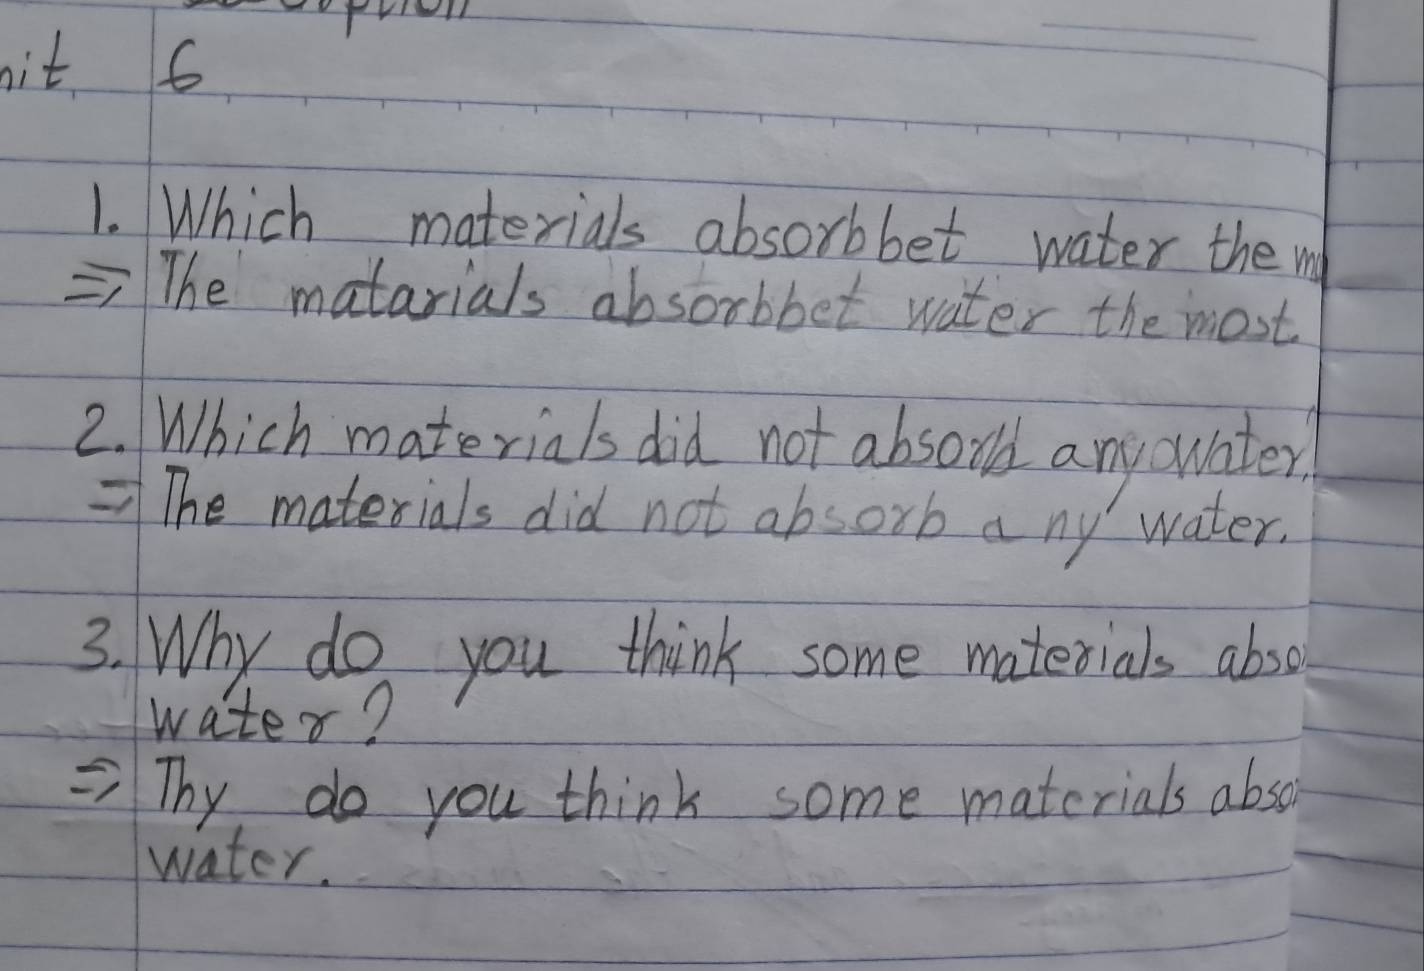 6
1. Which materials absorbbet water the
⇒ The matarials absorbbet water the most.
2. Which materials did not absorbd any water.
⇒ The materials did not absorb any water.
3. Why do you think some materials abso
water?
⇒ Thy do you think some materials abso
water.